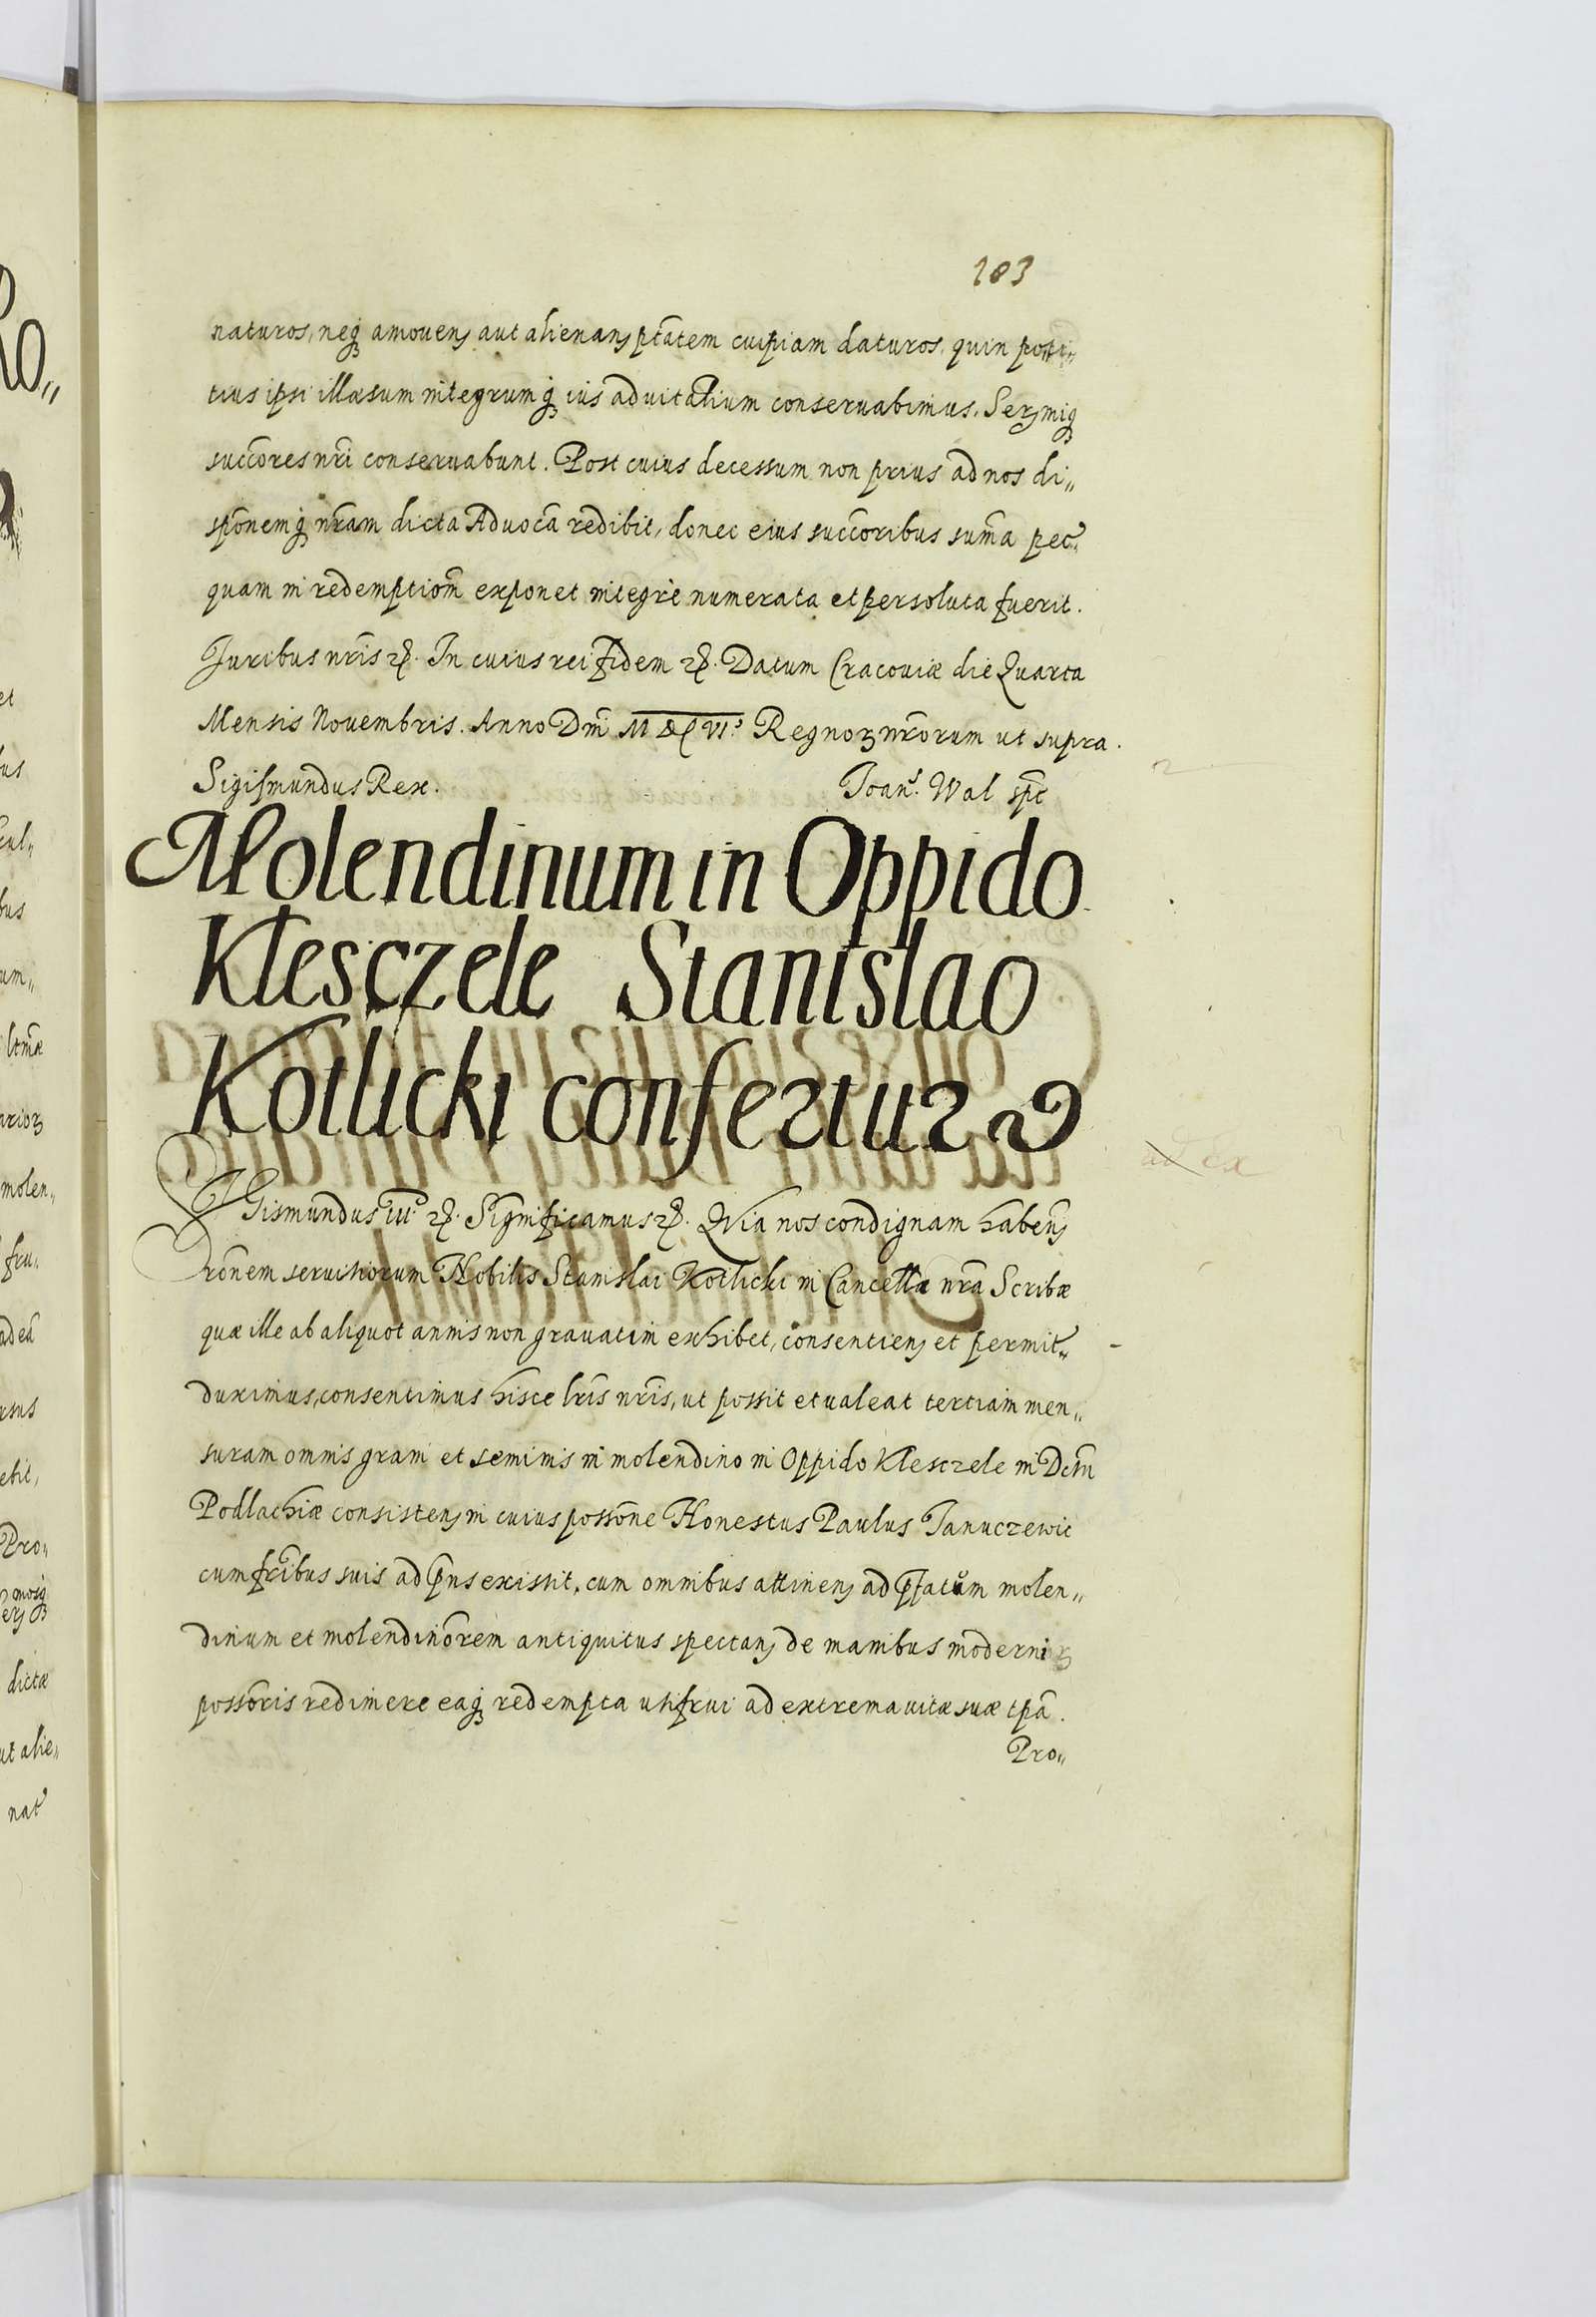 103
naturos, neq₃ amouenƺ aut alienanƺ ptãtem cuipiam daturos, quin poti„
tius ipsi illæsum integrumq₃ ius aduitalium conseruabimus. Serƺmiq₃
succõres nri conseruabunt. Post cuius decessum non prius ad nos di„
sponemq₃ nram dicta Aduocã redibit, donec eius succoribus suma pec:
quam in redemptiom exponet integrè numerata et persoluta fuerit.
Juribus nris ꝛc. In cuius rei fidem ꝛc. Datum Cracouiæ die Quarta
Mensis Nouembris. Anno Dni M DXCVI.º Regnoꝝ nrorum ut supra.
Sigismundus Rex.
Joan: Wal spt
Molendinum in Oppido
Klesczele Stanislao
Kotlicki confertur
SIGismundus III.º ꝛc. Significamus ꝛc. Quia nos condignam habenƺ
ronem seruitiorum Nobilis Stanislai Kotlicki in Cancella nra Scribæ
quæ ille ab aliquot annis non grauatim exhibet, consentienƺ et permit„
duximus, consentimus hisce lris nris, ut possit et ualeat tertiam men„
suram omnis grani et seminis in molendino in Oppido Klesczele in Dctu
Podlachiæ consistenƺ in cuius possone Honestus Paulus Januczewic
cum fribus suis ad pns existit, cum omnibus attinenƺ ad pfatum molen„
dinum et molendinorem antiquitus spectanƺ de manibus moderni
possoris redimere eaq₃ redempta utifrui ad extrema uitæ suæ tpa.
Pro„